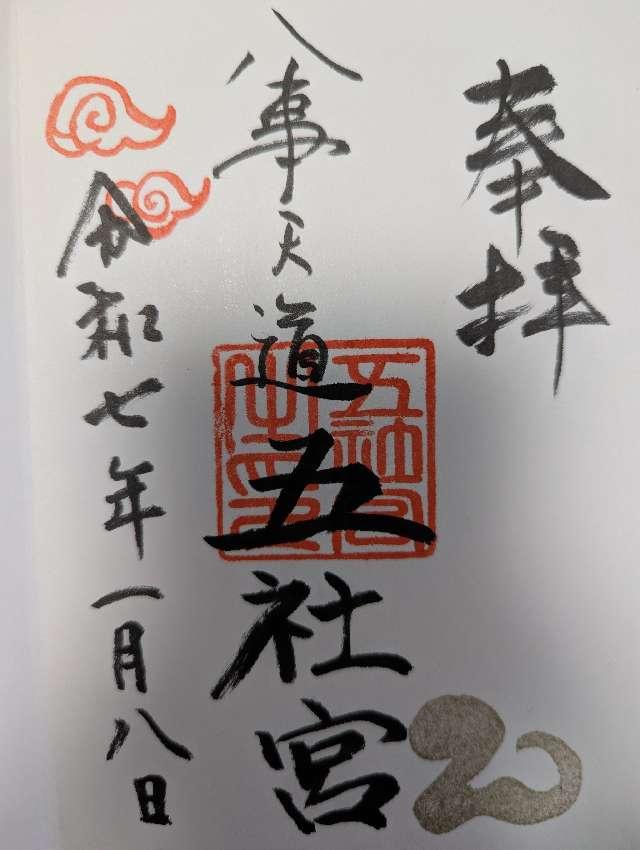 奉拝
八事天道五社宮
五社宮之印
令和七年一月八日